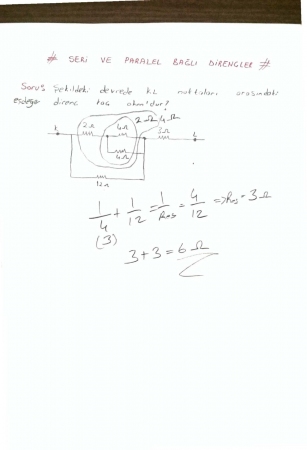 # SERİ VE PARALEL BAĞLI DİRENÇLER #
Soru: Şekildeki devrede KL noktaları arasındaki
eşdeğer direnç kaç ohm'dur?
2Ω 4Ω
2Ω 4Ω 3Ω
K L
4Ω
12Ω
1/4 + 1/12 = 1/Reş = 4/12 => Reş = 3Ω
(3)
3+3=6Ω